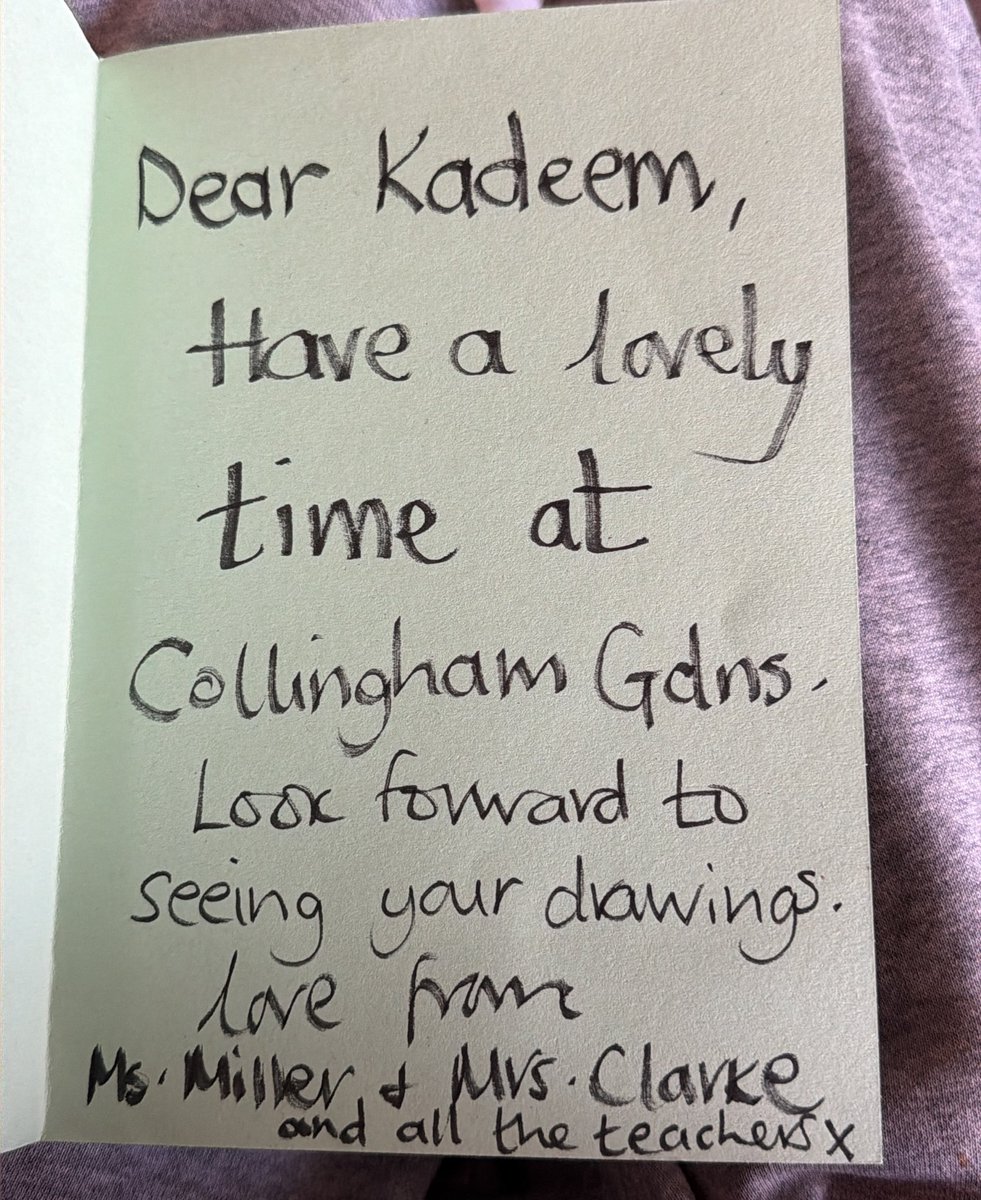 Dear Kadeem,
Have a lovely
time at
Collingham Gdns.
Look forward to
seeing your drawings.
love from
Ms. Miller & Mrs. Clarke
and all the teachers x